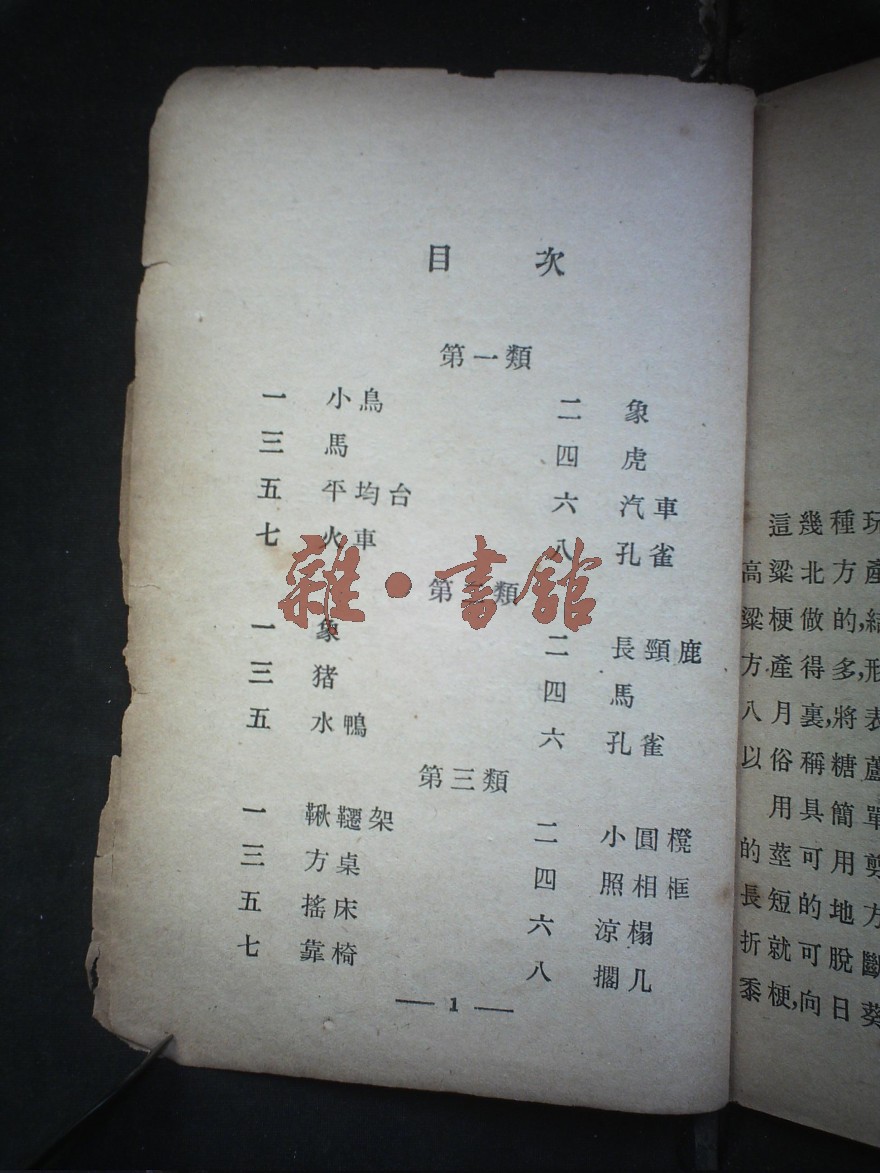 目 次
第一類
一 小鳥 二 象
三 馬 四 虎
五 平均台 六 汽車
七 火車 八 孔雀
第二類
一 象 二 長頸鹿
三 猪 四 馬
五 水鴨 六 孔雀
第三類
一 鞦韆架 二 小圓櫈
三 方桌 四 照相框
五 搖床 六 涼榻
七 靠椅 八 擱几
— 1 —
雜·書館
這幾種玩
高粱北方產
粱梗做的,結
方產得多,形
八月裏,將表
以俗稱糖蘆
用具簡單
的莖可用剪
長短的地方
折就可脫斷
黍梗,向日葵